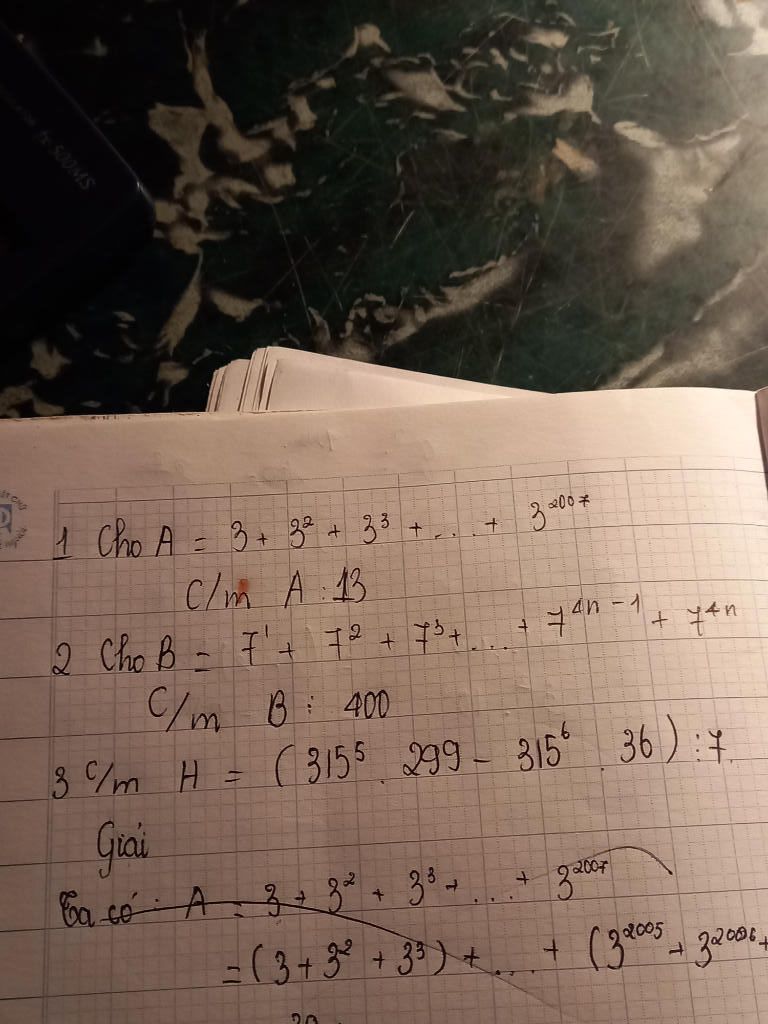 fx-500MS
1 Cho A = 3 + 3² + 3³ + ... + 3²⁰⁰⁷
C/m A ⋮ 13
2 Cho B = 7¹ + 7² + 7³ + ... + 7⁴ⁿ⁻¹ + 7⁴ⁿ
C/m B ⋮ 400
3 C/m H = (315⁵ . 299 - 315⁶ . 36) ⋮ 7
Giải
Ta có : A = 3 + 3² + 3³ + ... + 3²⁰⁰⁷
= (3 + 3² + 3³) + ... + (3²⁰⁰⁵ + 3²⁰⁰⁶ +